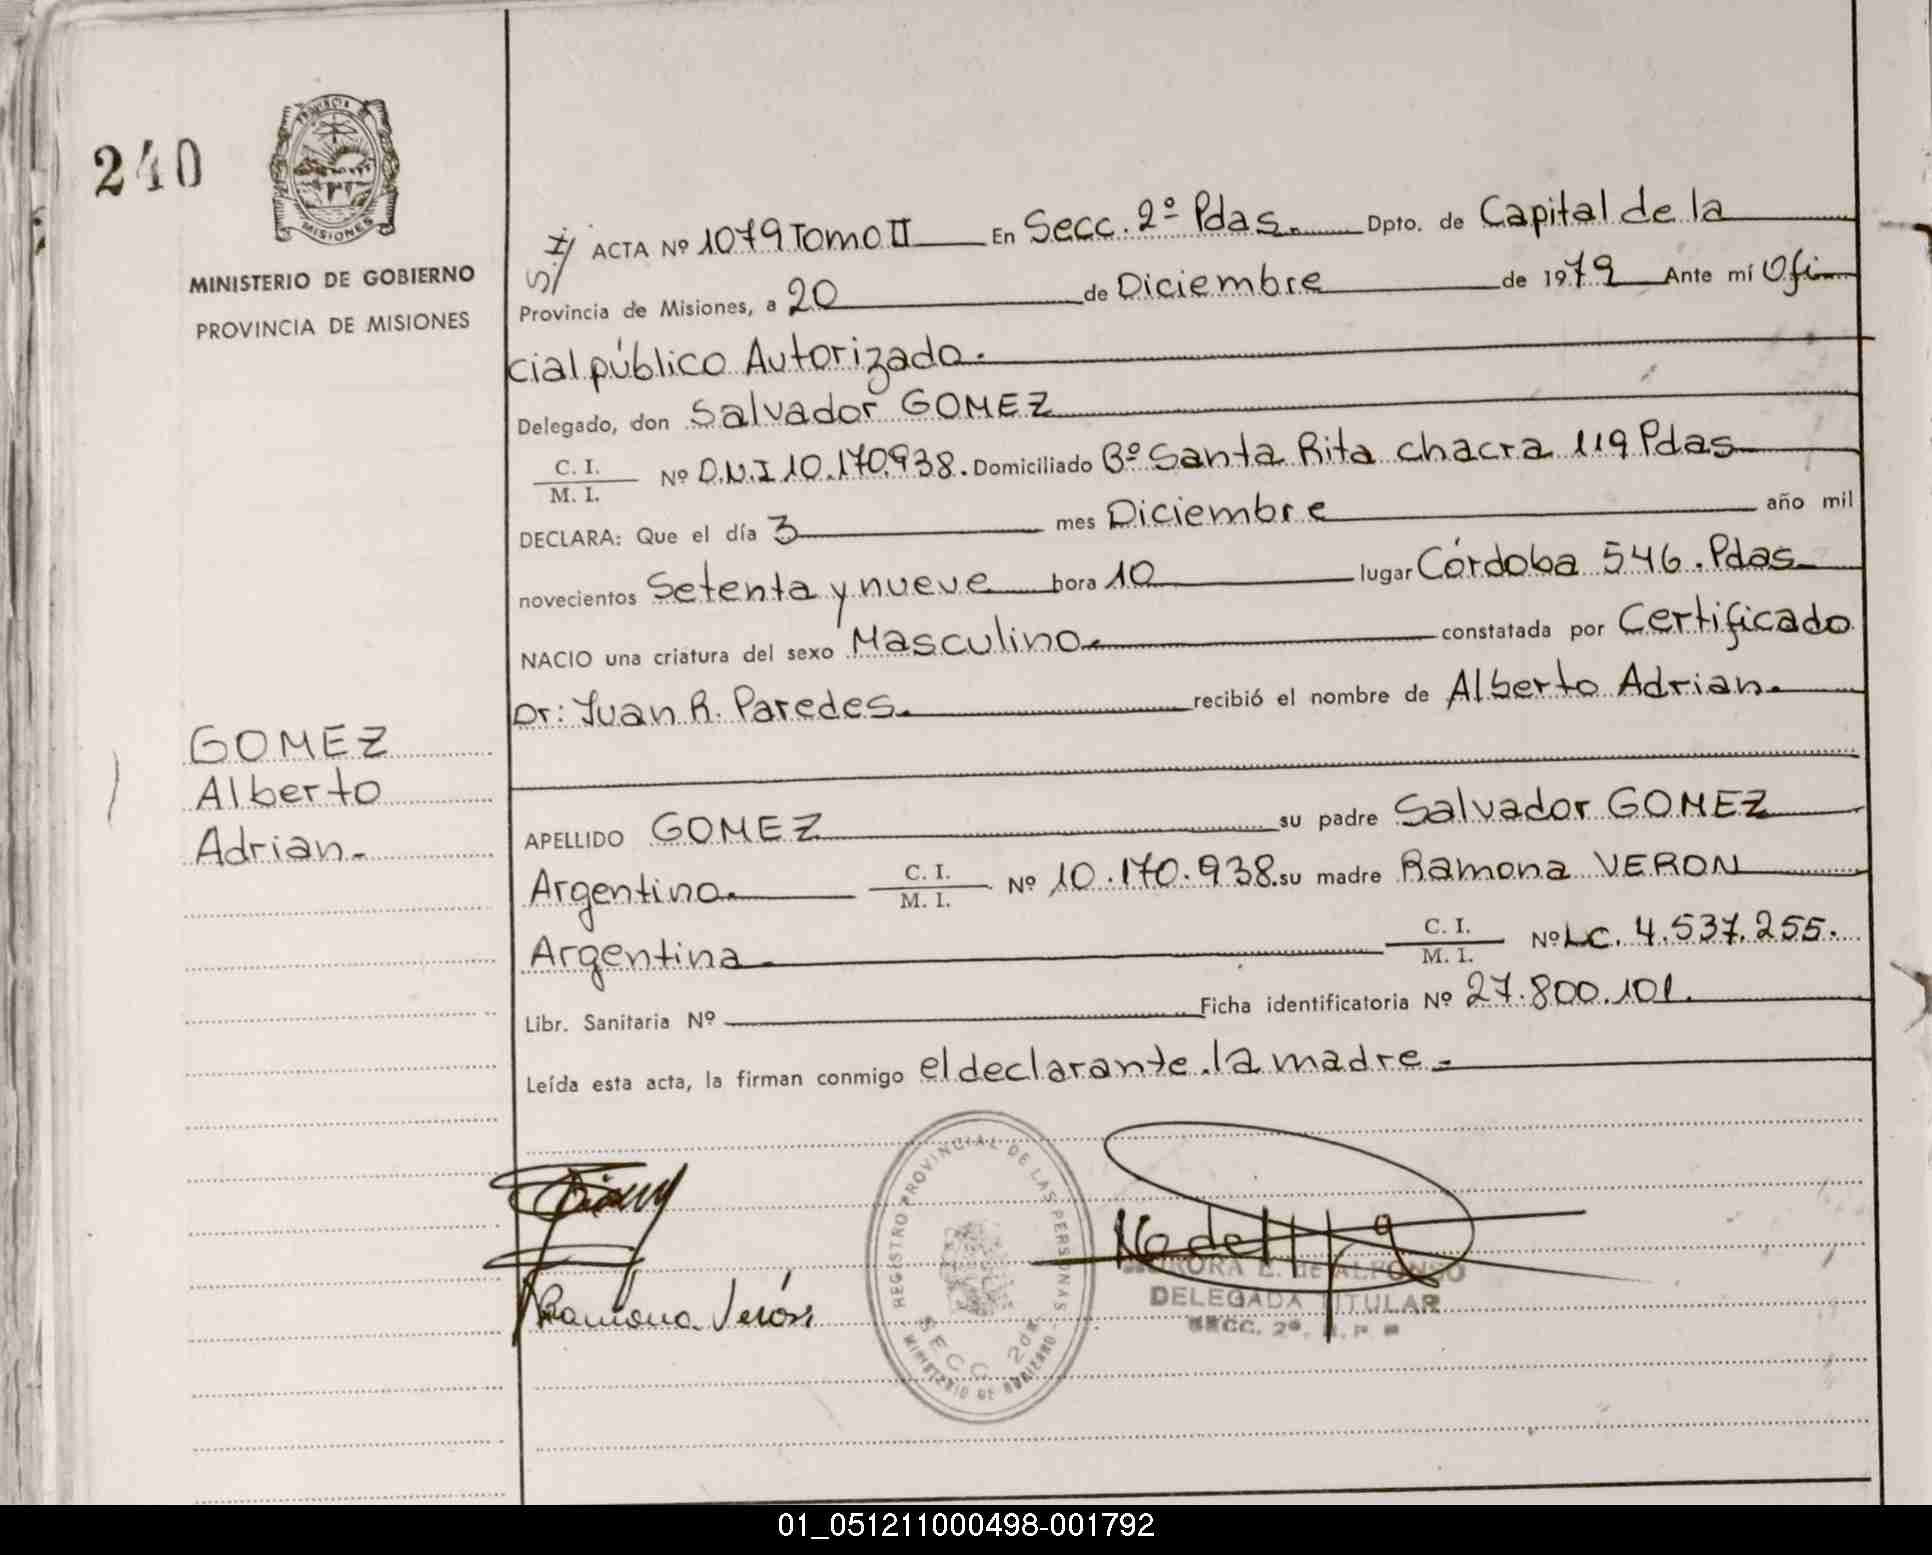 240
PROVINCIA DE
MISIONES
MINISTERIO DE GOBIERNO
PROVINCIA DE MISIONES
ACTA Nº 1079 Tomo II En Secc. 2º Pdas. Dpto. de Capital de la
Provincia de Misiones, a 20 de Diciembre de 1979 Ante mí Ofi
cial público Autorizado.
Delegado, don Salvador GOMEZ
C. I.
M. I. Nº D.N.I 10.170.938. Domiciliado Bº Santa Rita chacra 119 Pdas
DECLARA: Que el día 3 mes Diciembre año mil
novecientos Setenta y nueve hora 10 lugar Córdoba 546. Pdas
NACIO una criatura del sexo Masculino constatada por Certificado
Dr: Juan R. Paredes. recibió el nombre de Alberto Adrian.
GOMEZ
Alberto
Adrian.
APELLIDO GOMEZ su padre Salvador GOMEZ
Argentino. C. I.
M. I. Nº 10.170.938. su madre Ramona VERON
Argentina C. I.
M. I. Nº Lc. 4.537.255.
Libr. Sanitaria Nº Ficha identificatoria Nº 27.800.101.
Leída esta acta, la firman conmigo el declarante. la madre.
Ramona Verón
REGISTRO PROVINCIAL DE LAS PERSONAS
SECC 2da
MINISTERIO DE GOBIERNO
E. de ALFONSO
DELEGADA TITULAR
SECC. 2ª.
01_051211000498-001792